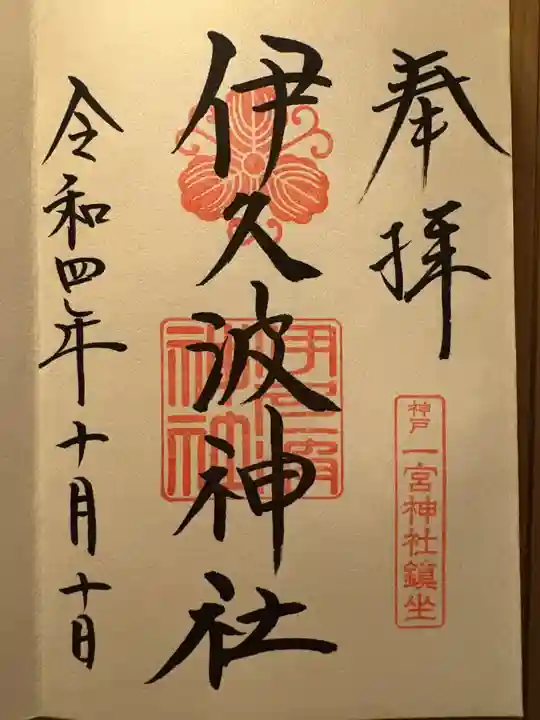 奉拝
神戸一宮神社鎮坐
伊久波神社
伊久波神社
令和四年十月十日